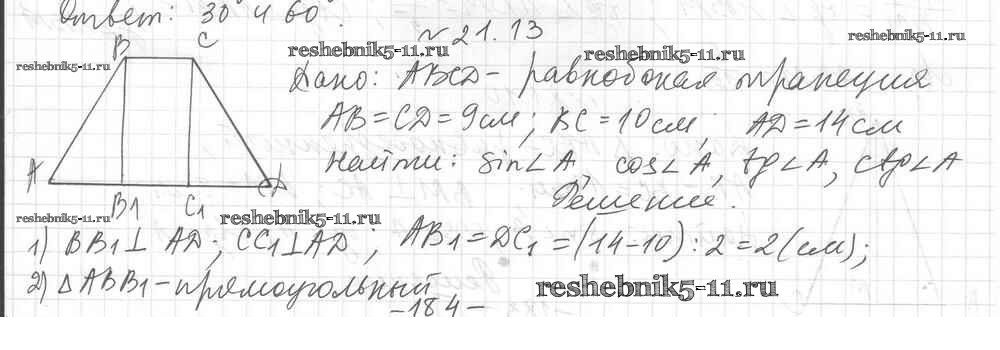 Ответ: 30° и 60°.
№21.13
reshebnik5-11.ru reshebnik5-11.ru reshebnik5-11.ru
reshebnik5-11.ru
B C
Дано: ABCD - равнобокая трапеция
AB = CD = 9 см; BC = 10 см; AD = 14 см
Найти: sin∠A, cos∠A, tg∠A, ctg∠A
A D
B1 C1
Решение.
reshebnik5-11.ru reshebnik5-11.ru
1) BB1⊥AD; CC1⊥AD; AB1 = DC1 = (14-10):2 = 2 (см);
2) △ABB1 - прямоугольный
reshebnik5-11.ru
-184-